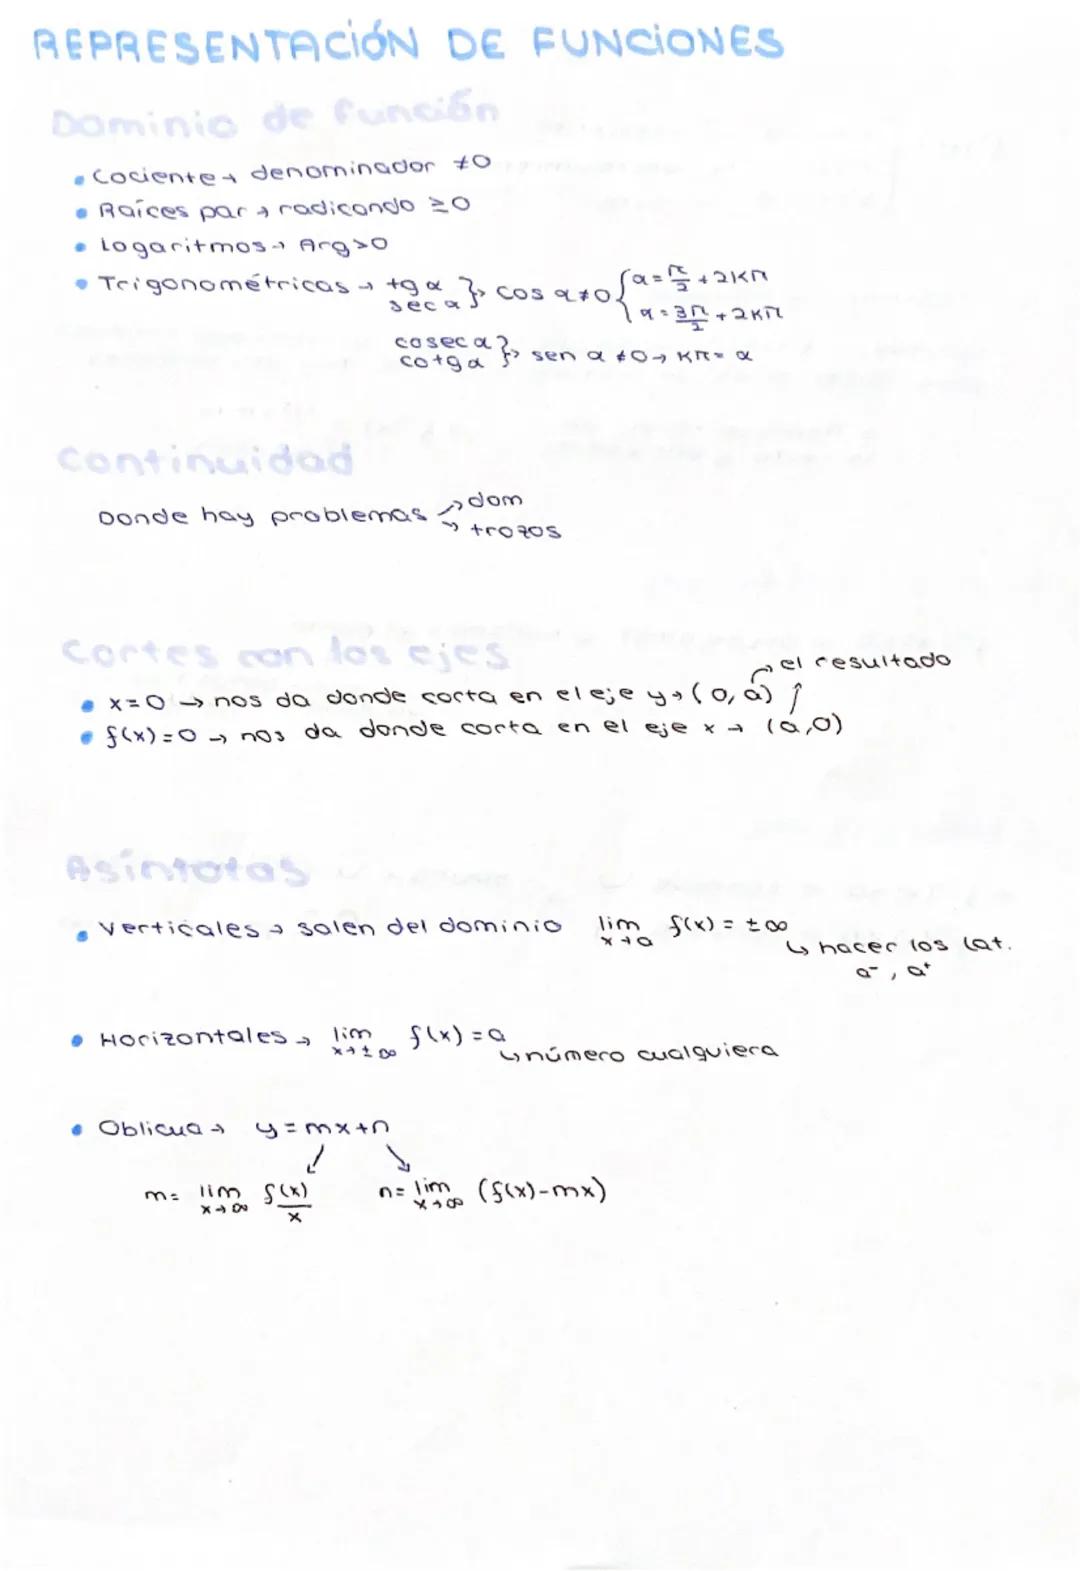 REPRESENTACIÓN DE FUNCIONES
Dominio de función
• Cociente → denominador ≠0
• Raíces par → radicando ≥0
• Logaritmos → Arg>0
• Trigonométricas → tg α sec α } → cos α≠0 { α = π/2 + 2Kπ
α = 3π/2 + 2Kπ
cosec α cotg α } → sen α ≠0 → Kπ = α
Continuidad
Donde hay problemas → dom
→ trozos
Cortes con los ejes
→ el resultado
• x=0 → nos da donde corta en el eje y → (0,a) ↑
• f(x)=0 → nos da donde corta en el eje x → (a,0)
Asíntotas
• Verticales → salen del dominio lim x→a f(x) = ±∞
↳ hacer los lat.
a⁻, a⁺
• Horizontales → lim x→±∞ f(x) = a
↳ número cualquiera
• Oblicua → y = mx+n
m = lim x→∞ f(x)/x n = lim x→∞ (f(x)-mx)